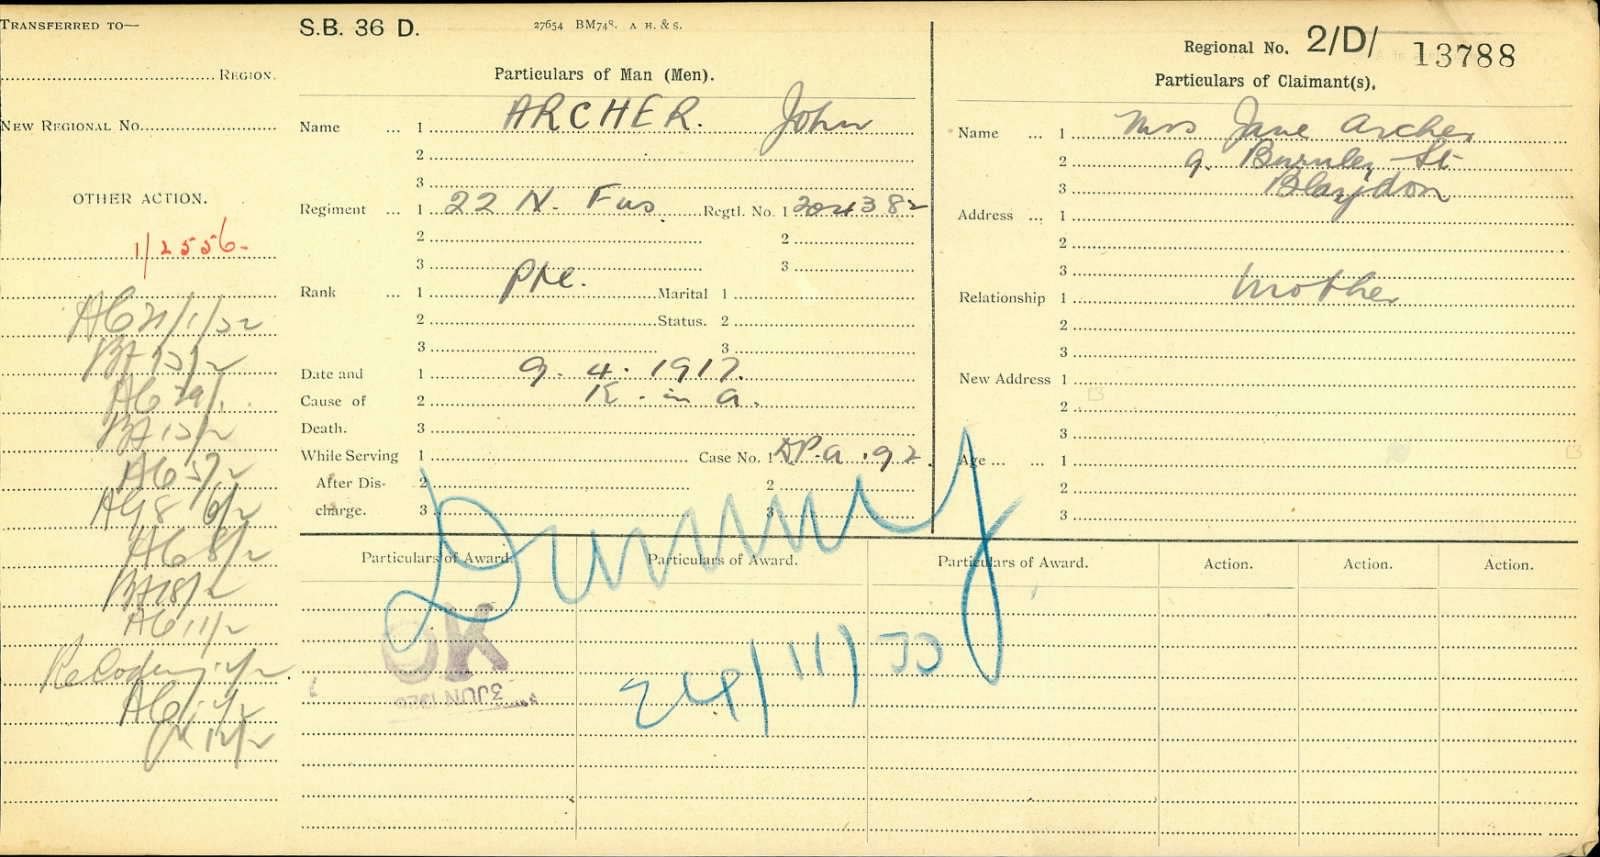 TRANSFERRED TO—
REGION.
NEW REGIONAL No.
OTHER ACTION.
1/2556.
AG 21/1/32
BA 13/2
AG 29/1
BA 13/2
AG 5/2
AG 8/2
BA 18/2
AG 11/2
S.B. 36 D.
27654 BM748. A H. & S.
Particulars of Man (Men).
Name ... 1 ARCHER. John
2
3
Regiment ... 1 22 N. Fus Regtl. No. 1 204382
2 2
3 3
Rank ... 1 Pte. Marital 1
2 Status. 2
3 3
Date and 1 9. 4. 1917.
Cause of 2 K. in a.
Death. 3
While Serving 1 Case No. 1 DP.a.92.
After Dis- 2 2
charge. 3 3
Regional No. 2/D/ 13788
Particulars of Claimant(s).
Name ... 1 Mrs Jane Archer
2 9. Burnley St
3 Blaydon
Address ... 1
2
3
Relationship 1 Mother
2
3
New Address 1
2
3
Age ... ... 1
2
3
Particulars of Award. Particulars of Award. Particulars of Award. Action. Action. Action.
Dummy
OK
3 JUN
24/11/33